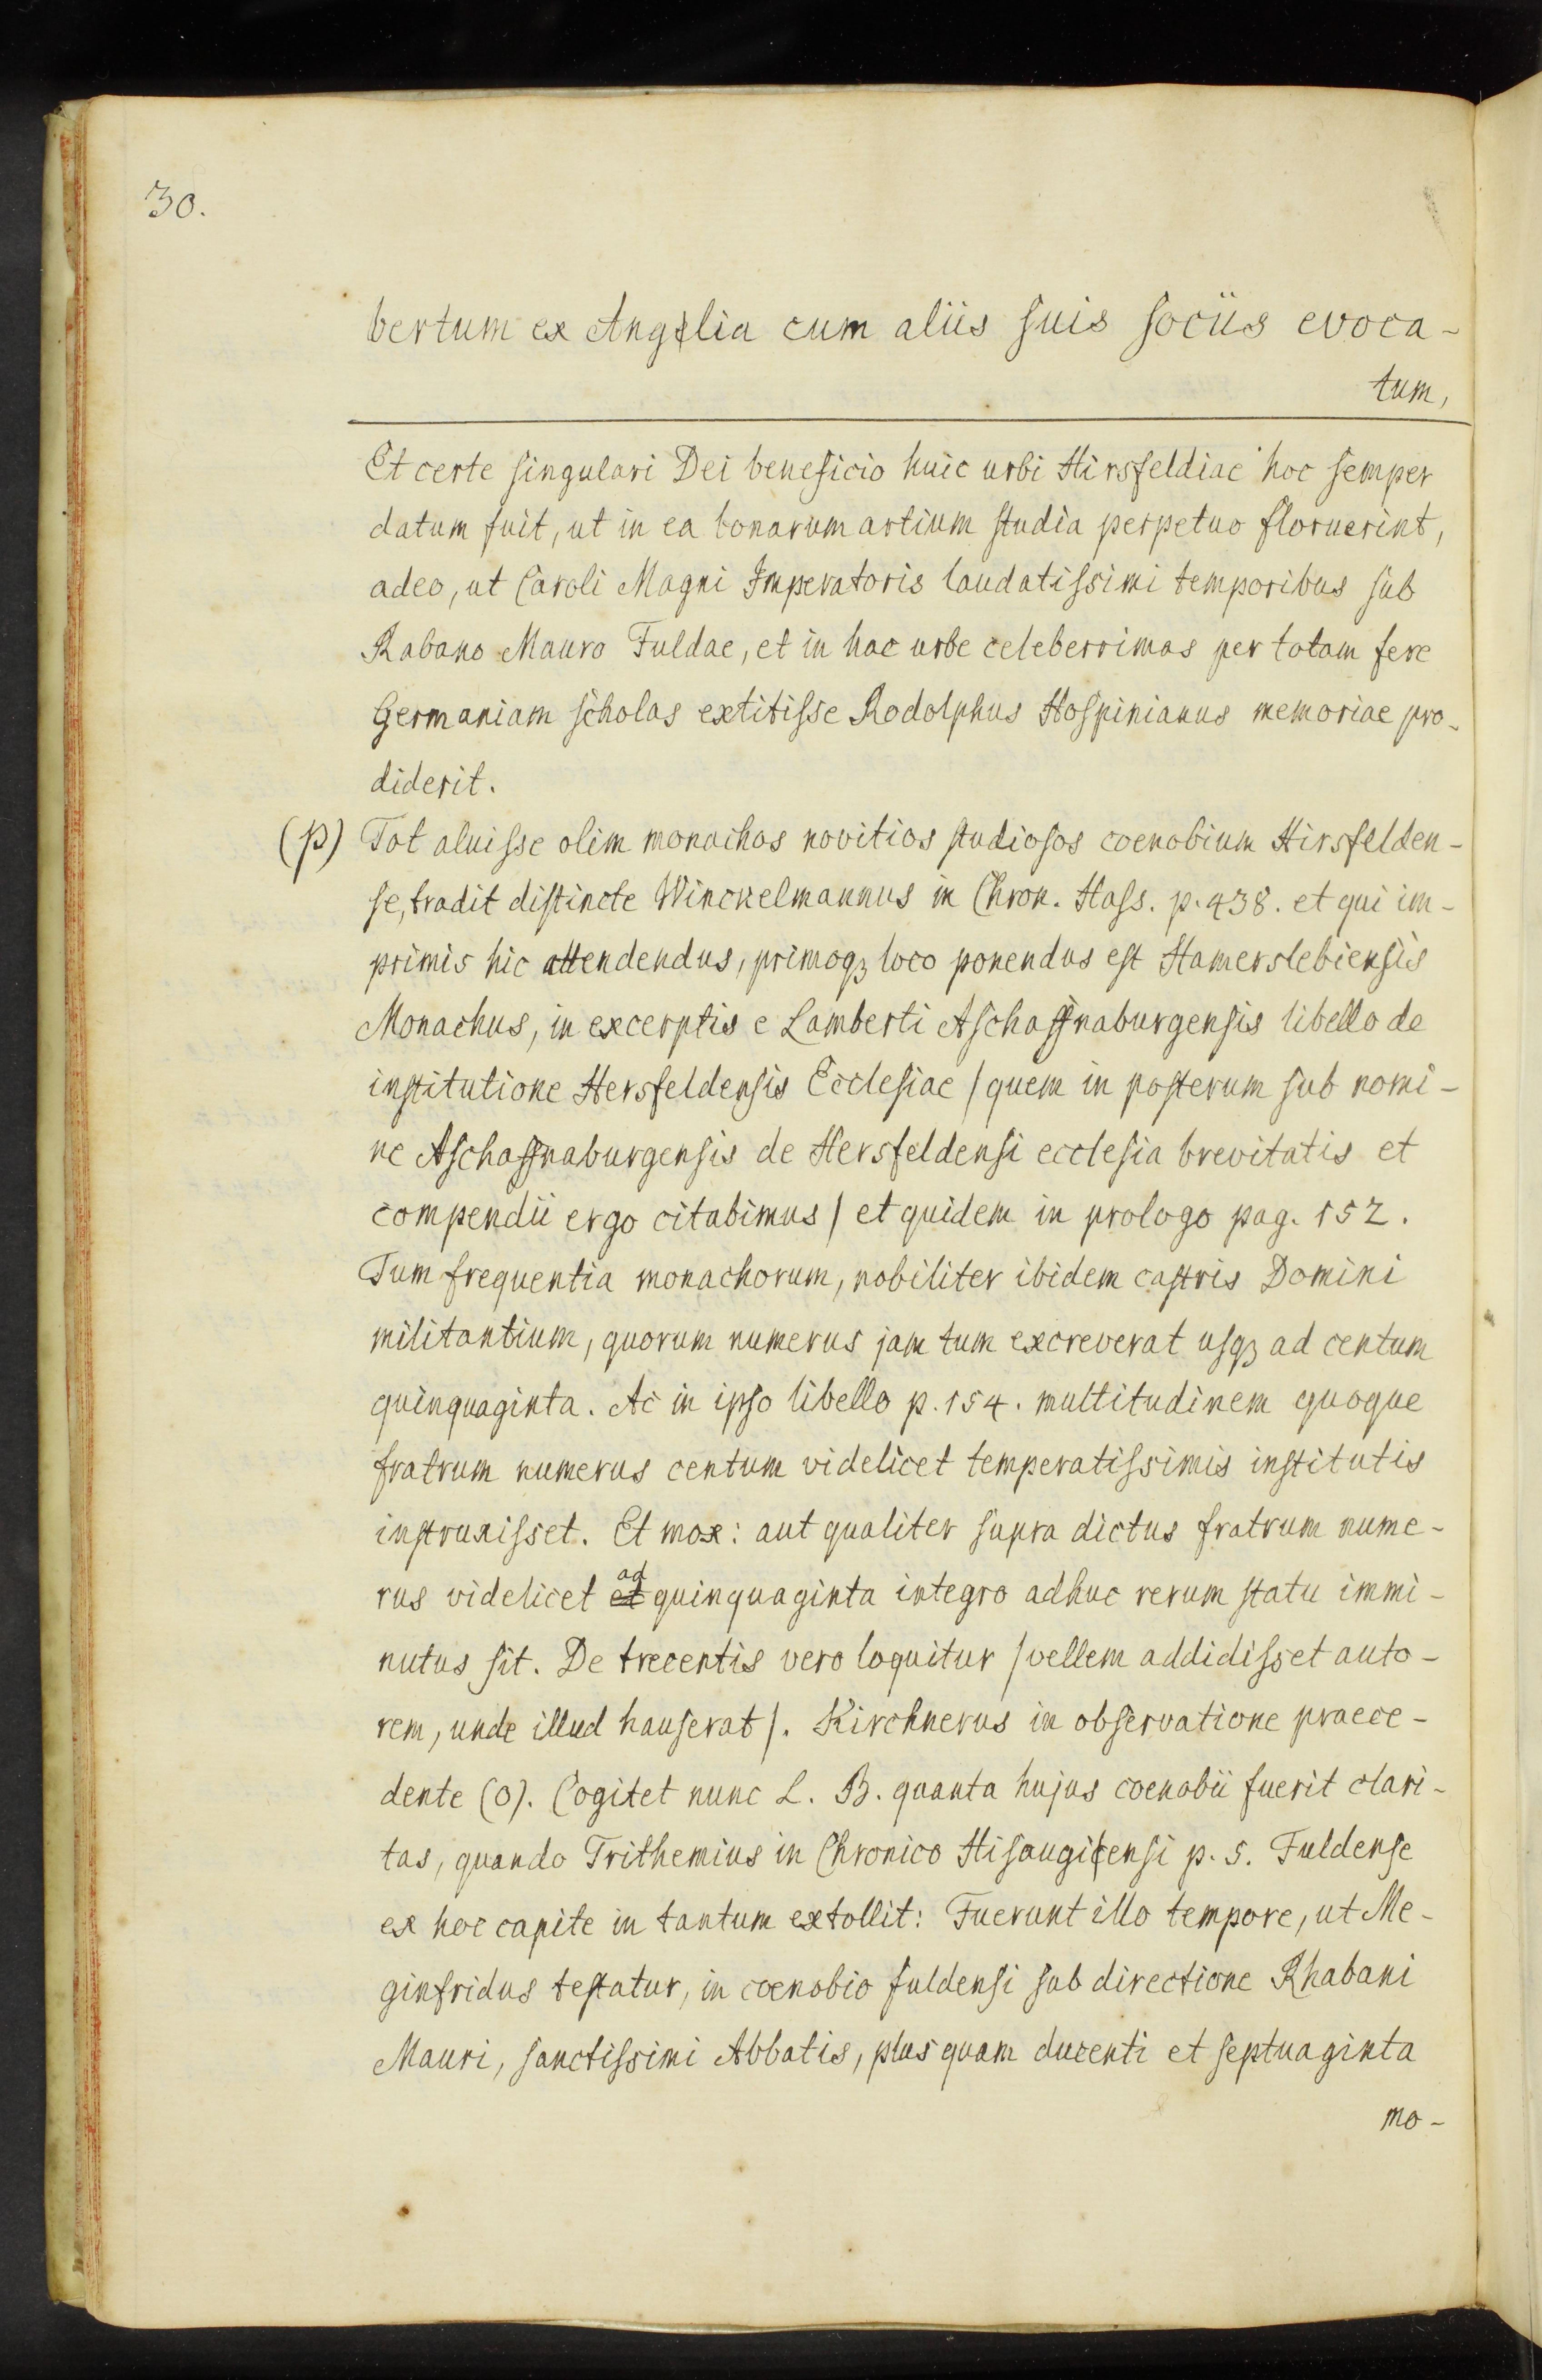 30.
bertum ex Anglia cum aliis suis sociis evoca-
tum,
Et certe singulari Dei beneficio huic urbi Hirsfeldiae hoc semper
datum fuit, ut in ea bonarum artium studia perpetuo floruerint,
adeo, ut Caroli Magni Imperatoris laudatissimi temporibus sub
Rabano Mauro Fuldae, et in hac urbe celeberrimas per totam fere
Germaniam scholas extitisse Rodolphus Hospinianus memoriae pro-
diderit.
(p) Tot aluisse olim monachos novitios studiosos coenobium Hirsfelden-
se, tradit distincte Winckelmannus in Chron. Hass. p. 438. et qui im-
primis hic attendendus, primoqꝫ loco ponendus est Hamerslebiensis
Monachus, in excerptis e Lamberti Aschaffnaburgensis libello de
institutione Hersfeldensis Ecclesiae / quem in posterum sub nomi-
ne Aschaffnaburgensis de Hersfeldensi ecclesia brevitatis et
compendii ergo citabimus / et quidem in prologo pag. 152.
Tum frequentia monachorum, nobiliter ibidem castris Domini
militantium, quorum numerus jam tum excreverat usqꝫ ad centum
quinquaginta. Ac in ipso libello p. 154. multitudinem quoque
fratrum numerus centum videlicet temperatissimis institutis
instruxisset. Et mox: aut qualiter supra dictus fratrum nume-
rus videlicet et ad quinquaginta integro adhuc rerum statu immi-
nutus sit. De trecentis vero loquitur / vellem addidisset auto-
rem, unde illud hauserat /. Kirchnerus in observatione praece-
dente (o). Cogitet nunc L. B. quanta hujus coenobii fuerit clari-
tas, quando Trithemius in Chronico Hisaugiensi p. 5. Fuldense
ex hoc capite in tantum extollit: Fuerunt illo tempore, ut Me-
ginfridus testatur, in coenobio fuldensi sub directione Rhabani
Mauri, sanctissimi Abbatis, plus quam ducenti et septuaginta
mo-